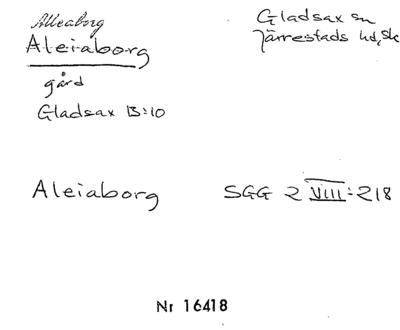 Alleaborg
Aleiaborg
gård
Gladsax 13:10
Gladsax sn
Järrestads hd, Sk
Aleiaborg SGG 2 VIII:218
Nr 16418